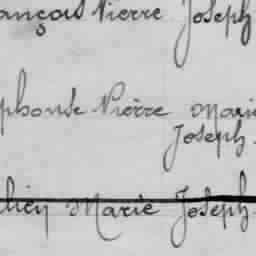 ançois Pierre Joseph
phonse Pierre Marie
Joseph.
lien Marie Joseph.